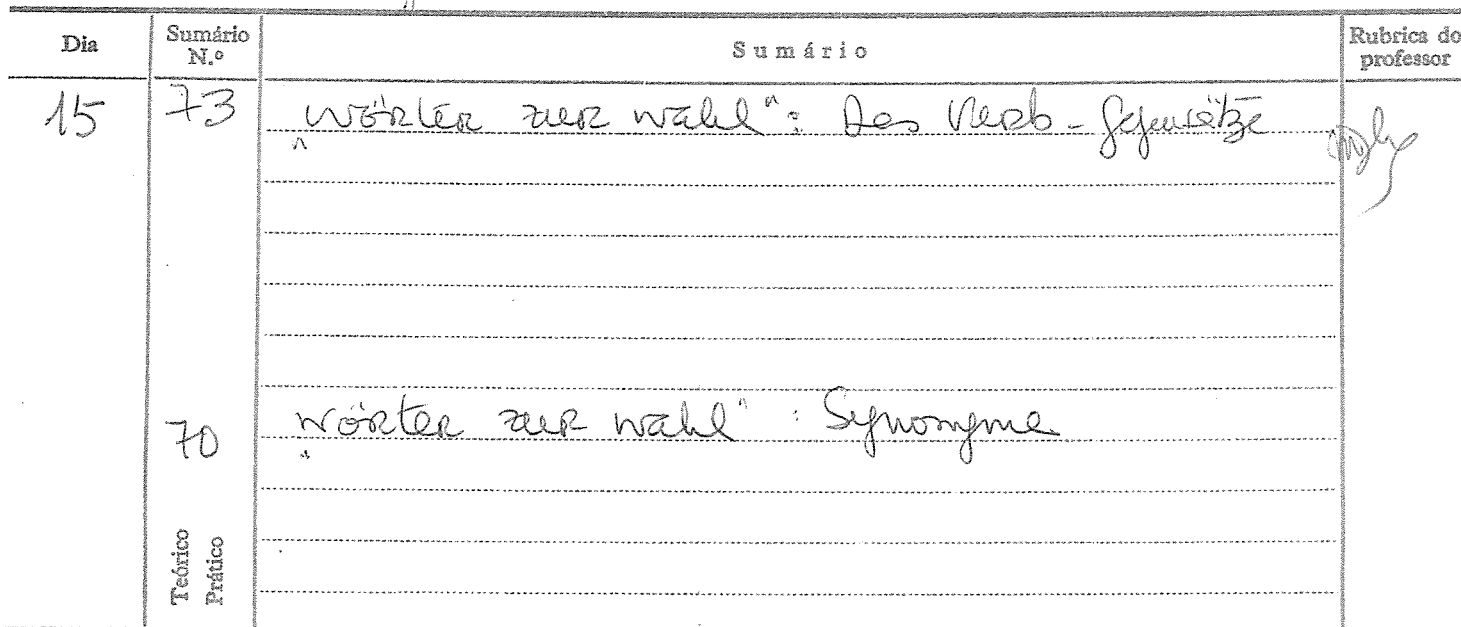 Dia Sumário N.º Sumário Rubrica do professor
15 73 "Wörter zur Wahl": Das Verb - Gegensätze
70 "Wörter zur Wahl": Synonyme
Teórico
Prático